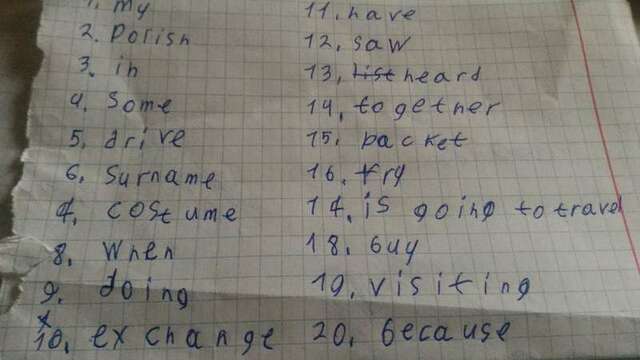 1. my
2. Polish
3. in
4. some
5. drive
6. Surname
7. costume
8. when
9. doing
10. exchange
11. have
12. saw
13. list heard
14. together
15. packet
16. try
17. is going to travel
18. buy
19. visiting
20. because